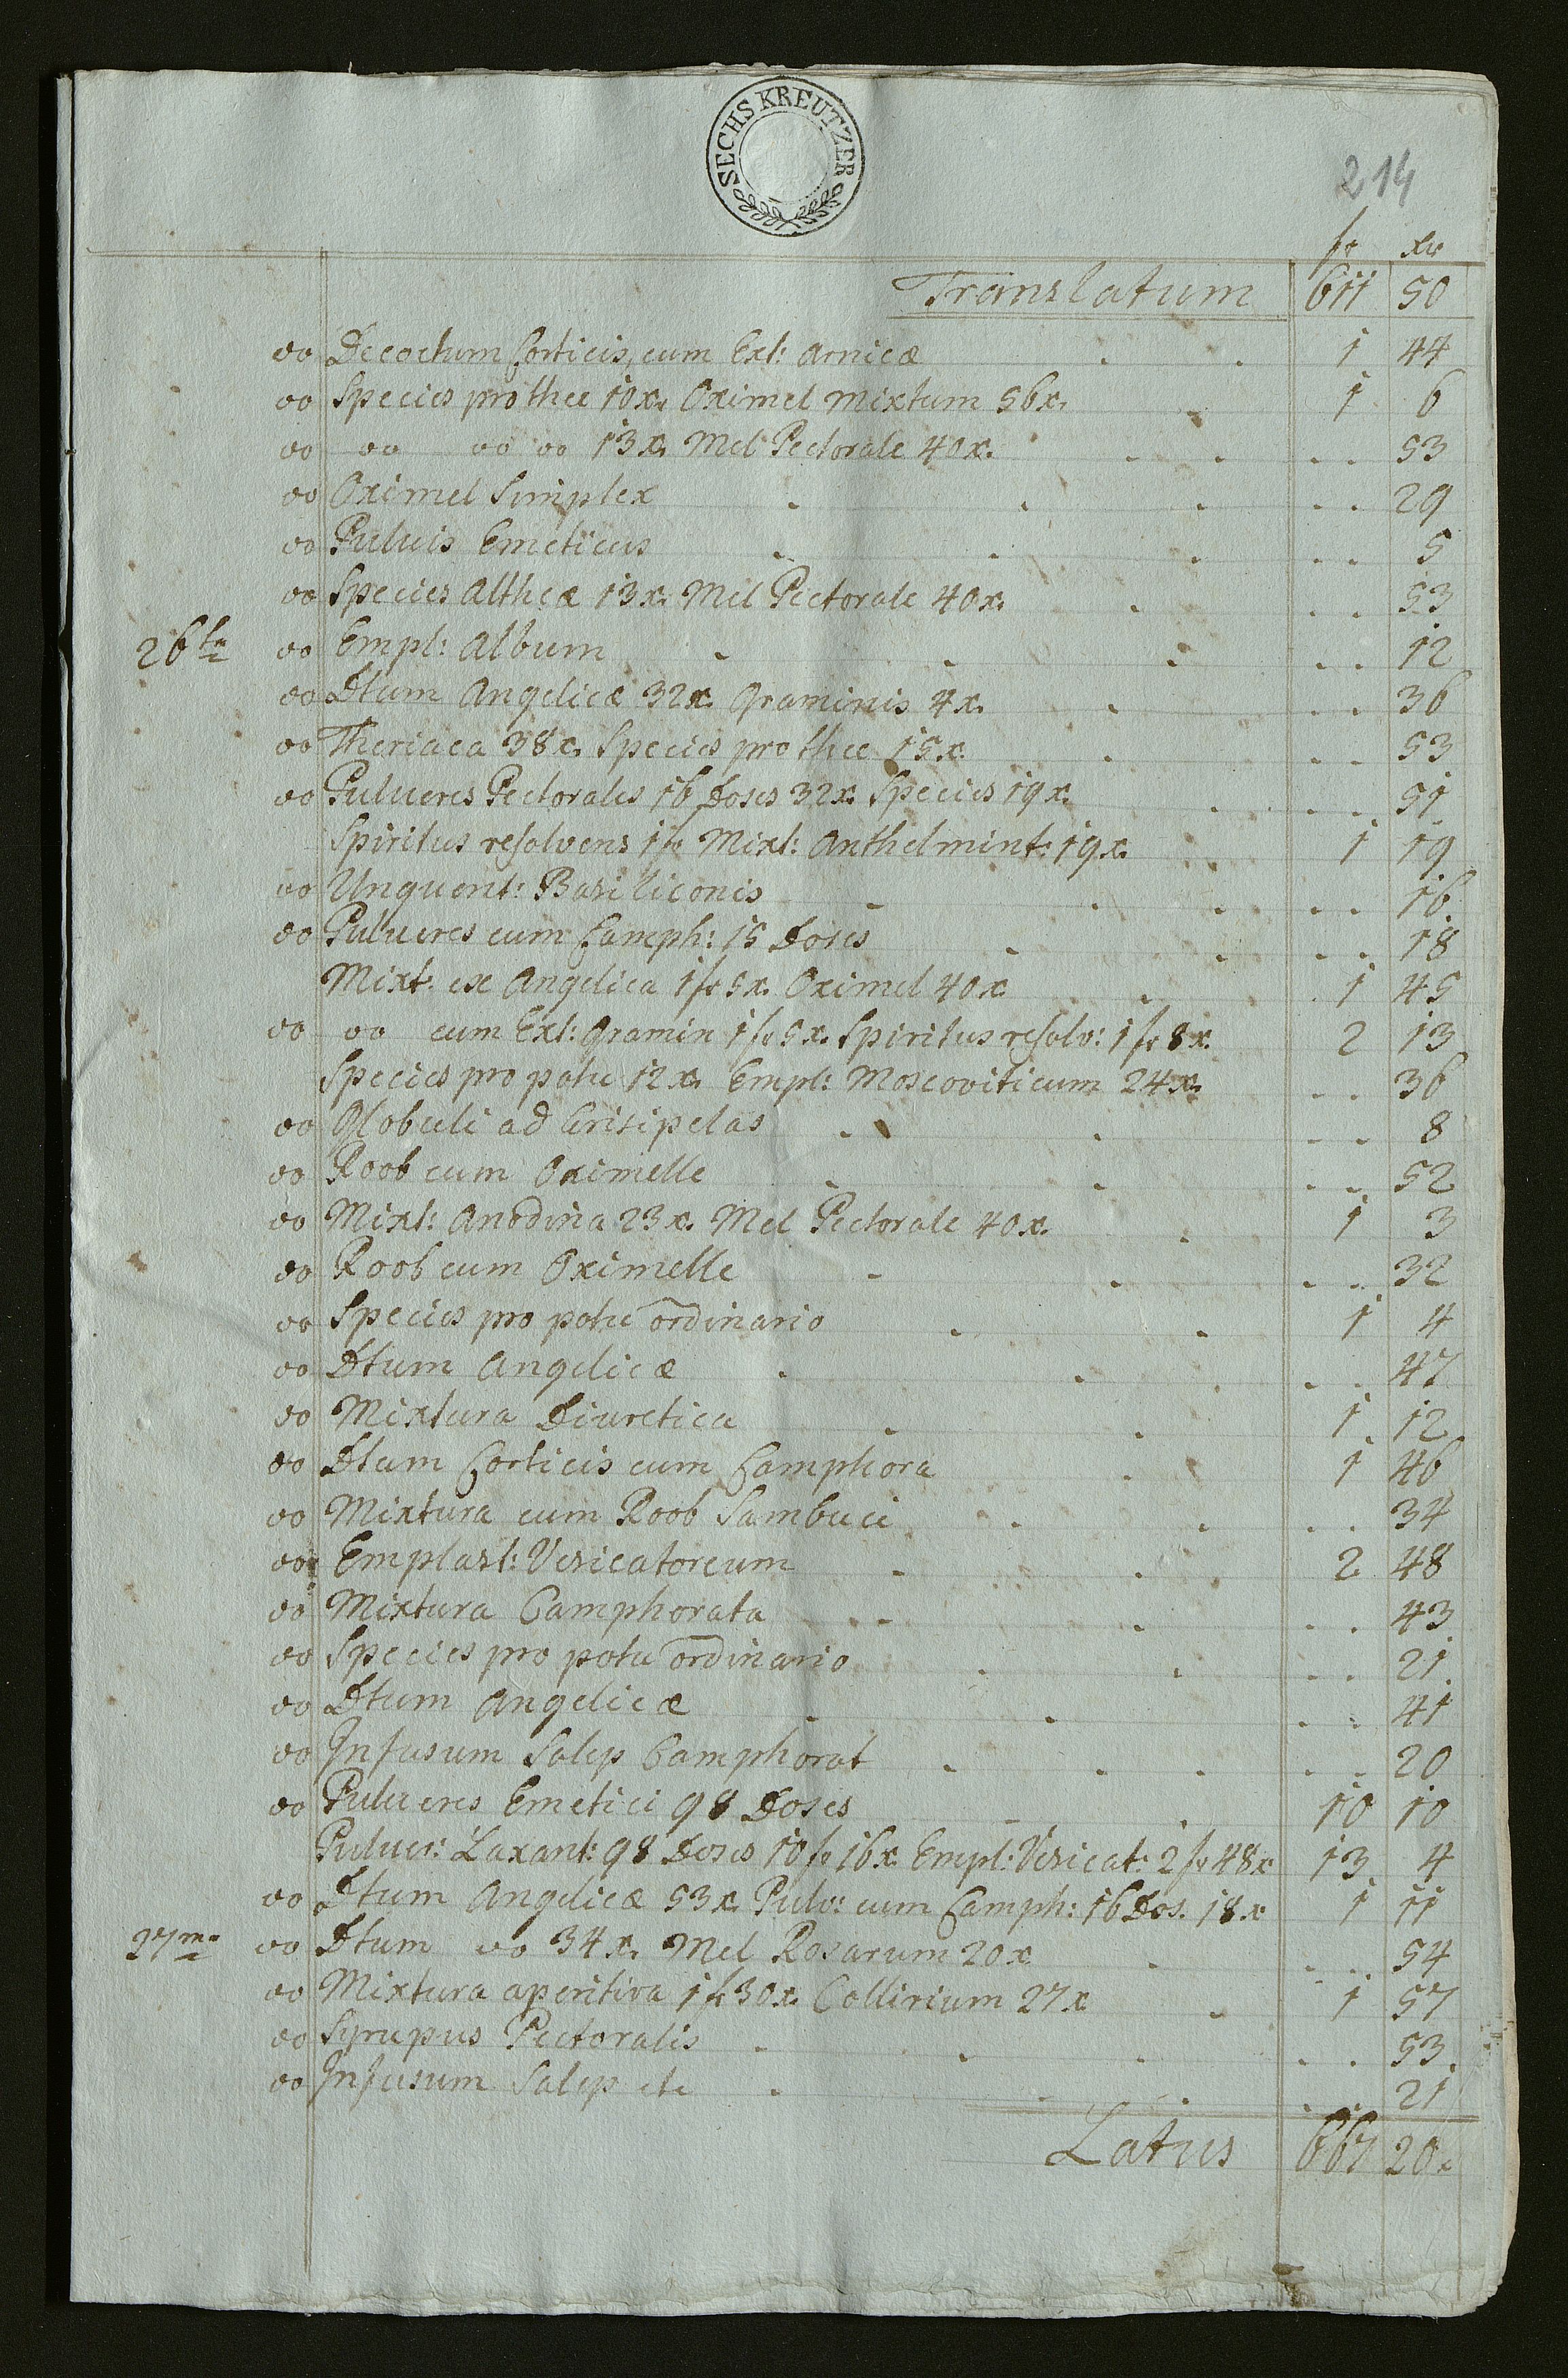 SECHS KREUTZER
214
fr xr
Translatum 611 50
oo Decoctum Corticis, cum Ext: Arnicæ . . 1 44
oo Species pro thee 10x. Oximel mixtum 56x. . 1 6
oo oo oo oo 13x. Mel Pectorale 40x. . . . . 53
oo Oximel Simplex . . . . . 29
oo Puluis Emeticus . . . . . 5
oo Species Altheæ 13x. Mel Pectorale 40x. . . . . 53
26ta oo Empl: Album . . . . . 12
oo Dtum Angelicæ 32x. Graminis 4x. . . . 36
oo Theriaca 38x. Species pro thee 15x. . . . 53
oo Pulueres Pectorales 16 Doses 32x. Species 19x. . . . 51
Spiritus resolvens 1fr Mixt: Anthelmint: 19x. . 1 19
oo Unguent: Basiliconis . . . . . 16
oo Pulueres cum Camph: 15 Doses . . . . 18
Mixt: ex Angelica 1fr 5x. Oximel 40x . 1 45
oo oo cum Ext: Gramin 1fr 5x. Spiritus resolv: 1fr 8x. 2 13
Species pro potu 12x. Empl: Moscoviticum 24x. . . 36
oo Globuli ad Erisipelas . . . . 8
oo Roob cum Oximelle . . . . 52
oo Mixt: Anodina 23x. Mel Pectorale 40x. . 1 3
oo Roob cum Oximelle . . . . 32
oo Species pro potu ordinario . . 1 4
oo Dtum Angelicæ . . . . . 47
oo Mixtura Diuretica . . 1 12
oo Dtum Corticis cum Camphora . . 1 46
oo Mixtura cum Roob Sambuci . . . . 34
oo Emplast: Vesicatoreum . . . 2 48
oo Mixtura Camphorata . . . . 43
oo Species pro potu ordinario . . . . 21
oo Dtum Angelicæ . . . . 41
oo Infusum Salep Camphorat . . . . . 20
oo Pulueres Emetici 98 Doses . . 10 10
Pulver: Laxant: 98 Doses 10fr 16x. Empl: Vesicat: 2fr 48x 13 4
oo Dtum Angelicæ 53x. Pulv: cum Camph: 16 Dos. 18x 1 11
27ma oo Dtum oo 34x. Mel Rosarum 20x . . . 54
oo Mixtura aperitiva 1fr 30x. Collirium 27x . 1 57
oo Syrupus Pectoralis . . . . . 53
oo Infusum Salep etc . . . . . 21
Latus 667 20.